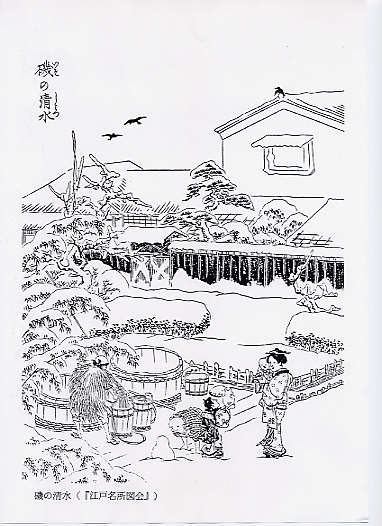 磯の清水
磯の清水（『江戸名所図会』）